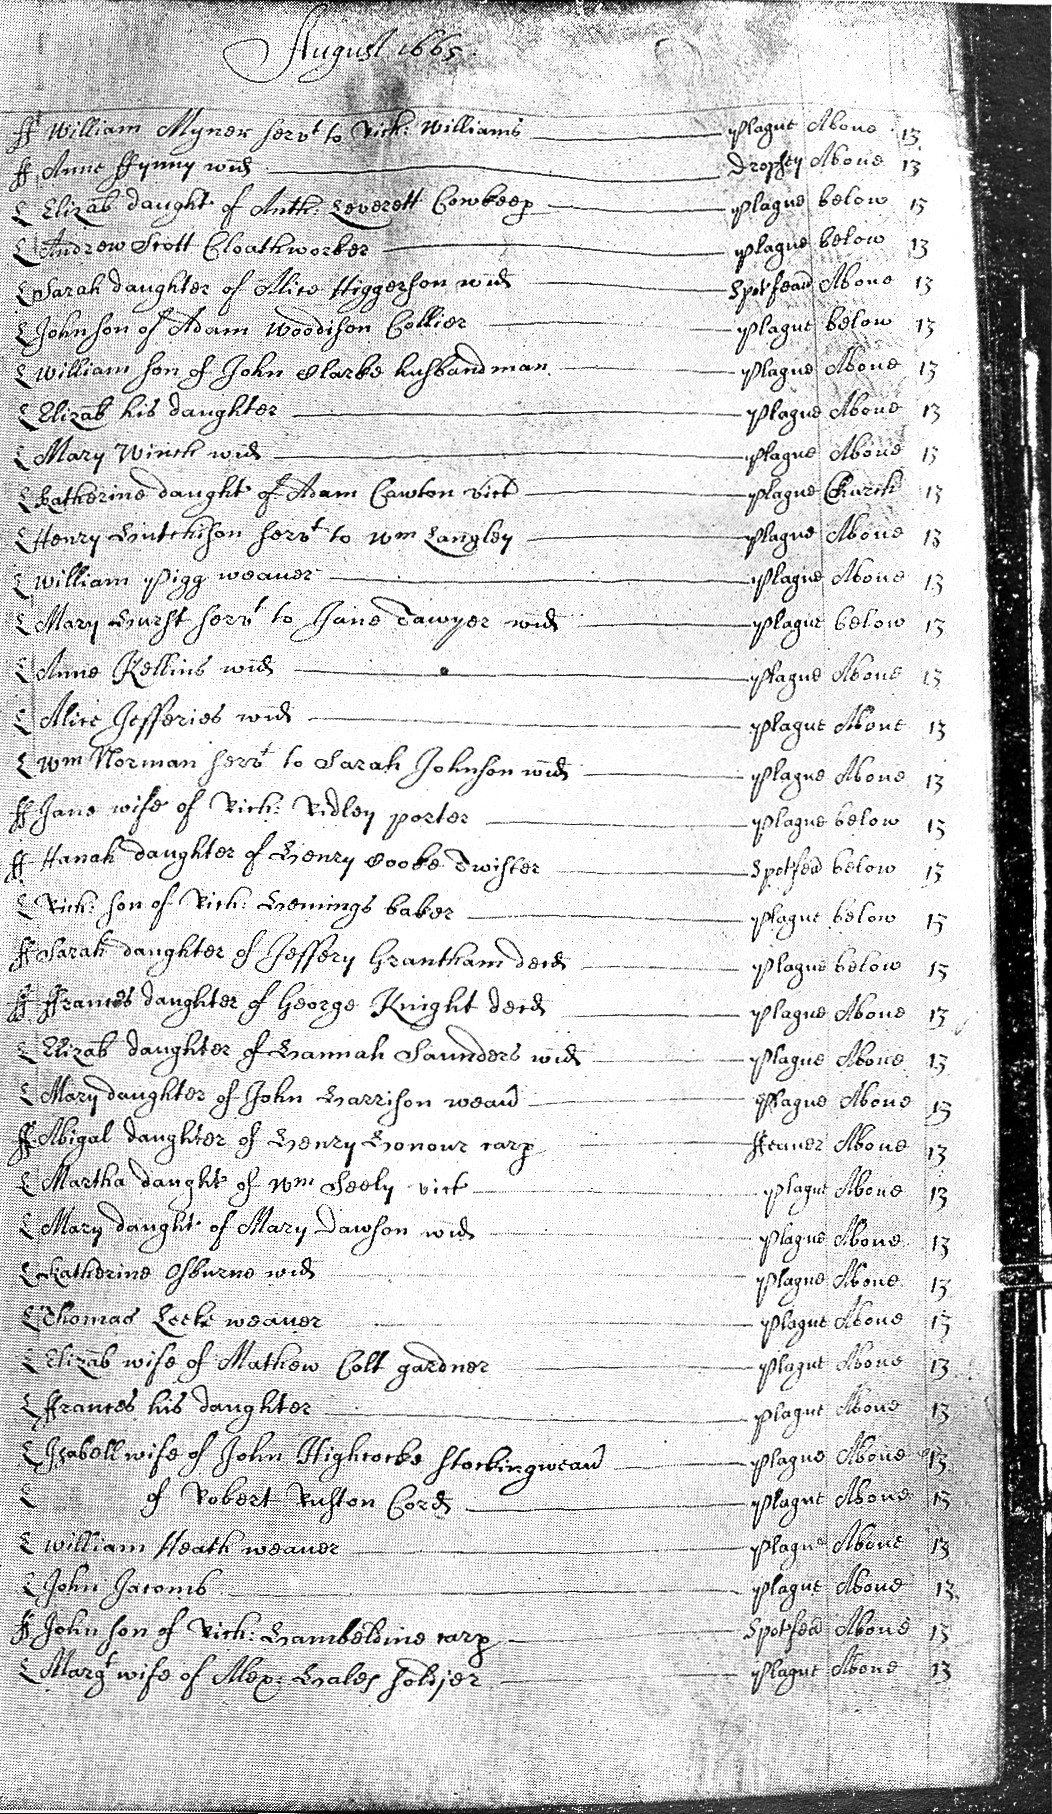 August 1665
ff William Myner servt to Rich: Williams plague Above 13
ff Anne ffynny wid dropsey Above 13
L Elizab daught of Anth: Leverett Cowkeep plague below 13
L Andrew Scott Cloathworker plague below 13
L Sarah daughter of Alice Higgerson wid Spotfeav Above 13
L John son of Adam Woodison Collier plague below 13
L William son of John Clarke husbandman plague Above 13
L Elizab his daughter plague Above 13
L Mary Winch wid plague Above 13
L Katherine daught of Adam Cawton vict plague Church 13
L Henry Hutchison servt to Wm Langley plague Above 13
L William Pigg weaver plague Above 13
L Mary Hurst servt to Jane Sawyer wid plague below 13
L Anne Kellins wid plague Above 13
L Alice Jefferies wid plague Above 13
L Wm Norman servt to Sarah Johnson wid plague Above 13
ff Jane wife of Rich: Ridley porter plague below 13
ff Hanah daughter of Henry Cooke Twister Spotfea below 13
L Rich: son of Rich: Hemings baker plague below 13
ff Sarah daughter of Jeffery Grantham decd plague below 13
ff ffrances daughter of George Knight decd plague Above 13
L Elizab daughter of Hannah Saunders wid plague Above 13
L Mary daughter of John Harrison weav plague Above 13
ff Abigal daughter of Henry Honour carp ffeaver Above 13
L Martha daught of Wm Seely vict plague Above 13
L Mary daught of Mary Dawson wid plague Above 13
L Katherine Osburne wid plague Above 13
L Thomas Locke weaver plague Above 13
L Elizab wife of Mathew Colt gardner plague Above 13
L ffrances his daughter plague Above 13
L Isabell wife of John Highcocke Stockingweav plague Above 13
L of Robert Ruston Cord plague Above 13
L William Heath weaver plague Above 13
L John Jacomb plague Above 13
ff John son of Rich: Hambeldine carp Spotfea Above 13
L Margt wife of Alex: Hales soldjer plague Above 13